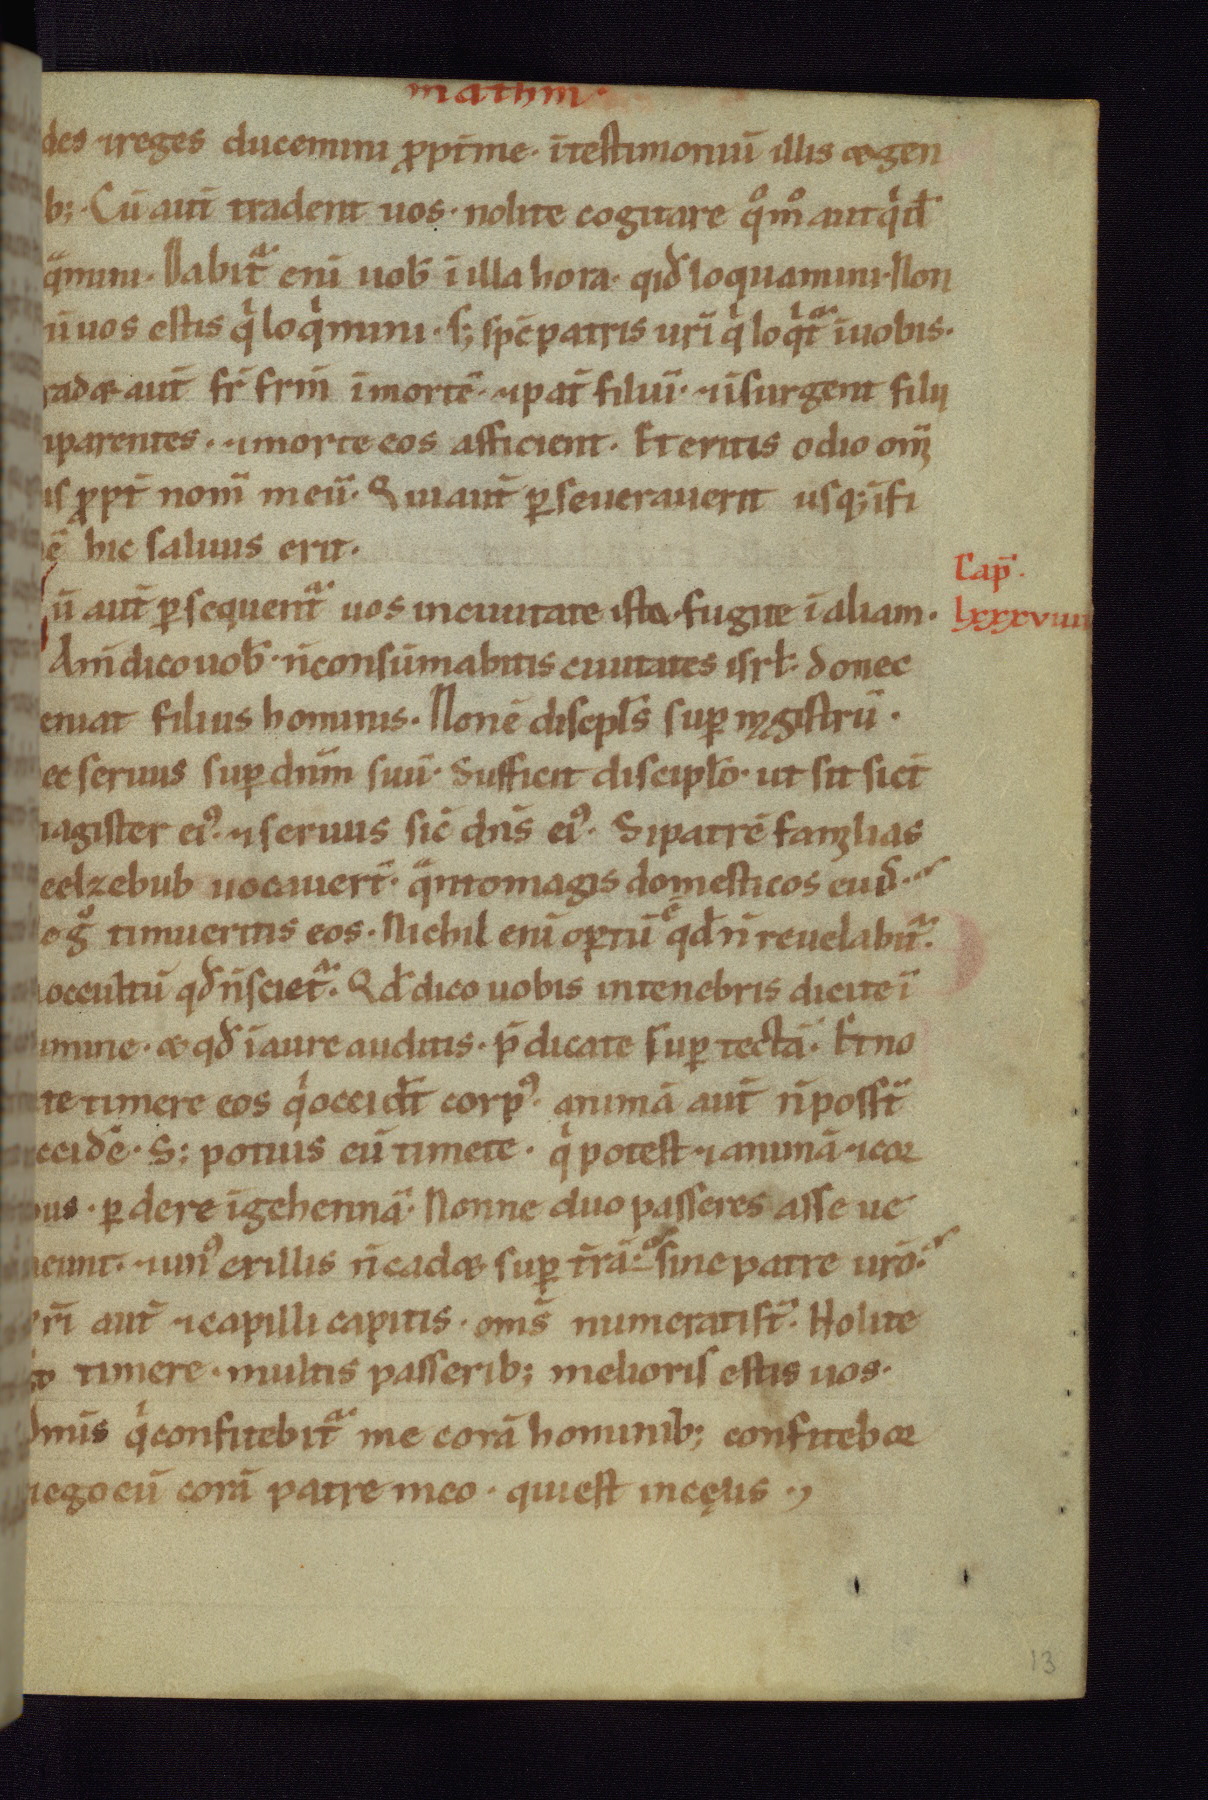 mathm
des ⁊reges ducemini ꝓpt̄me· ītestimoniū illis ⁊gen
b;· Cū aut̄ tradent uos· nolite cogitare qͦmͦ aut qͥd
qᷓmini· Dabit᷑ eni uob̄ ī illa hora· qid̄ loquamini· Non
uos estis qͥ loqͥmini· s; sp̄c patris ur̄i qͥ loqͥt᷑ īuobis·
radæ aut̄ fr̄ fr̄m īmortē· ⁊pat̄ filiū· ⁊īsurgent filii
īparentes· ⁊morte eos afficient· Et eritis odio om̄
ꝓpt̄ nom̄ meū· Qui aut̄ ꝑseuerauerit usq; īfi
nē hic saluus erit·
Cap̄·
ū aut̄ ꝑsequent᷑ uos inciuitate ista· fugite ī aliam·
lxxxviiii
Am̄ dico uob̄· n̄ consūmabitis ciuitates isrł· donec
eniat filius hominis· Non ē discipl̄s suꝑ mgistrū·
ec seruus suꝑ dn̄m suū· Sufficit discipl̄o· ut sit sic̄
magister ei⁹· ⁊seruus sic̄ dn̄s ei⁹· Si patrē familias
eelzebub uocauer̄t· qᷓnto magis domesticos eiu·
gͦ timueritis eos· Nichil eni oꝑtū ē qd̄ n̄ reuelabit᷑·
occultū qd̄ n̄ sciet᷑· Qd̄ dico uobis in tenebris dicite ī
umine· æ qd̄ ī aure auditis· p̄dicate suꝑ tectā· Et no
te timere eos qͥ occidt̄ corp⁹· animā aut̄ n̄ posst̄
ccidē· S; potius eū timete· qͥ potest ⁊animā ⁊cor
pus· ꝑdere ī gehennā· Nonne duo passeres asse ue
neunt· ⁊un⁹ exillis n̄ cadæ suꝑ t̄rā· sine patre ur̄o·
ri aut̄ ⁊capilli capitis· oms̄ numerati st̄· Nolite
timere· multis passerib; melioris estis uos·
Om̄is qͥ confitebit᷑ me corā hominib; confitebor
⁊ego eū corā patre meo· qui est in cęlis·
13